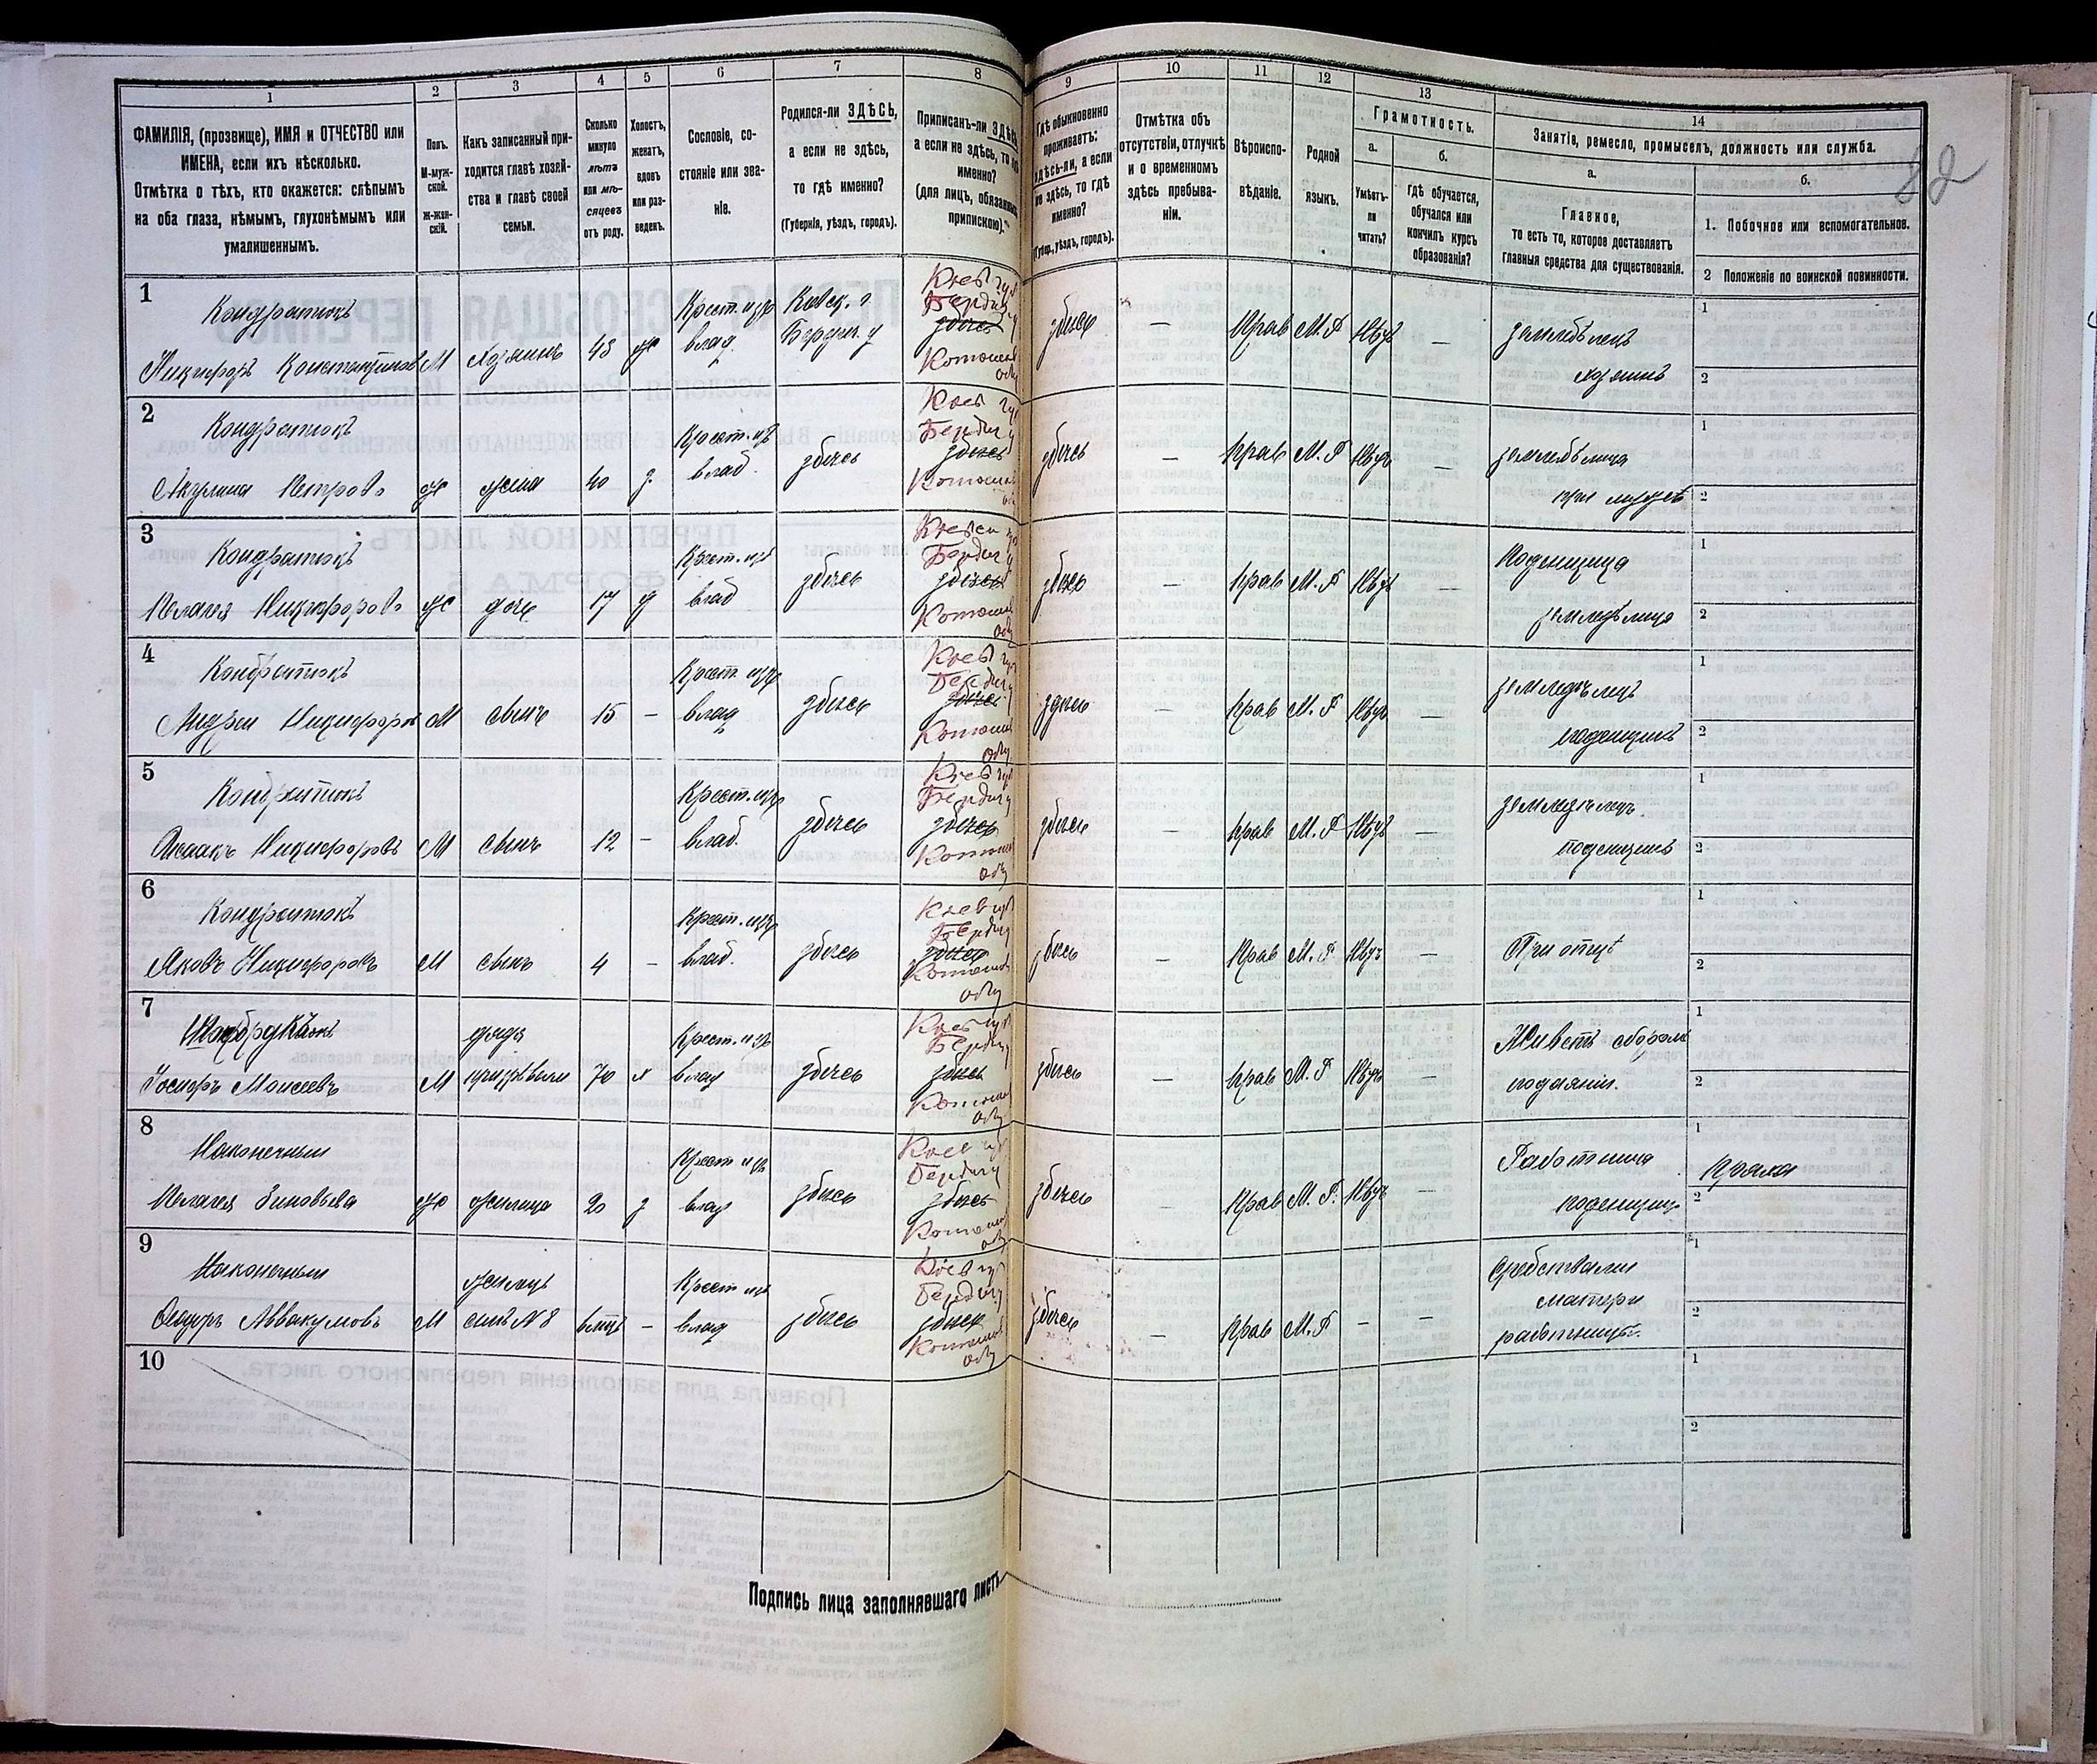 82
1
2
3
4
5
6
7
8
9
10
11
12
13
14
ФАМИЛІЯ, (прозвище), ИМЯ и ОТЧЕСТВО или
ИМЕНА, если ихъ нѣсколько.
Отмѣтка о тѣхъ, кто окажется: слѣпымъ
на оба глаза, нѣмымъ, глухонѣмымъ или
умалишеннымъ.
Полъ.
М-муж-
ской.
Ж-жен-
скій.
Какъ записанный при-
ходится главѣ хозяй-
ства и главѣ своей
семьи.
Сколько
минуло
лѣтъ
или мѣ-
сяцевъ
отъ роду.
Холостъ,
женатъ,
вдовъ
или раз-
веденъ.
Сословіе, со-
стояніе или зва-
ніе.
Родился-ли ЗДѢСЬ,
а если не здѣсь,
то гдѣ именно?
(Губернія, уѣздъ, городъ).
Приписанъ-ли ЗДѢСЬ,
а если не здѣсь, то гдѣ
именно?
(для лицъ, обязанныхъ
припискою).
Гдѣ обыкновенно
проживаетъ:
здѣсь-ли, а если
не здѣсь, то гдѣ
именно?
(Губер., уѣздъ, городъ).
Отмѣтка объ
отсутствіи, отлучкѣ
и о временномъ
здѣсь пребыва-
ніи.
Вѣроиспо-
вѣданіе.
Родной
языкъ.
Грамотность.
а.
Умѣетъ-
ли
читать?
б.
Гдѣ обучается,
обучался или
кончилъ курсъ
образованія?
Занятіе, ремесло, промыселъ, должность или служба.
а.
Главное,
то есть то, которое доставляетъ
главныя средства для существованія.
б.
1. Побочное или вспомогательное.
2 Положеніе по воинской повинности.
1
Кондратюкъ
Никифоръ Константиновъ М хозяинъ 43 ж Крест. изъ влад. Кіевск. г. Бердич. у
Кіев губ Бердич у здѣсь
здѣсь — Прав М.Р Нѣтъ — земледѣлецъ
хозяинъ
1
2
2
Кондратюкъ
Акулина Петрова ж жена 40 з. Крест. изъ влад. здѣсь
Кіев губ Бердич у здѣсь
здѣсь — Прав М.Р Нѣтъ — земледѣлица
при мужѣ
1
2
3
Кондратюкъ
Пелагея Никифорова ж дочь 17 д Крест. изъ влад здѣсь
Кіевск губ Бердич у здѣсь
здѣсь — Прав М.Р Нѣтъ — Поденщица
земледѣлица
1
2
4
Кондратюкъ
Андрей Никифоров М сынъ 15 — Крест. изъ влад здѣсь
Кіев губ Бердич у здѣсь
здѣсь — Прав М.Р Нѣтъ — земледѣлецъ
поденщикъ
1
2
5
Кондратюкъ
Исаакъ Никифоровъ М сынъ 12 — Крест. изъ влад. здѣсь
Кіев губ Бердич у здѣсь
здѣсь — Прав М.Р Нѣтъ — земледѣлецъ
поденщикъ
1
2
6
Кондратюкъ
Яковъ Никифоровъ М сынъ 4 — Крест. изъ влад. здѣсь
Кіев губ Бердич у здѣсь
здѣсь — Прав М.Р Нѣтъ — При отцѣ
1
2
7
Іосифъ Моисеевъ М дядя 70 Крест. изъ влад здѣсь
Кіев губ Бердич у здѣсь
здѣсь — Прав М.Р Нѣтъ — Живетъ сборомъ
подаяній.
1
2
8
Наконечный
Пелагея Зиновьева ж жилица 20 з Крест изъ влад здѣсь
Кіев губ Бердич у здѣсь
здѣсь — Прав М.Р. Нѣтъ — Работница
поденщица
1
Пряха
2
9
Наконечный
Ѳедоръ Аввакумовъ М жилецъ сынъ N 8 6 мѣц — Крест изъ влад здѣсь
Кіев губ Бердич у здѣсь
здѣсь — Прав М.Р — — Средствами
матери
работницы.
1
2
10
1
2
Подпись лица заполнявшаго листъ